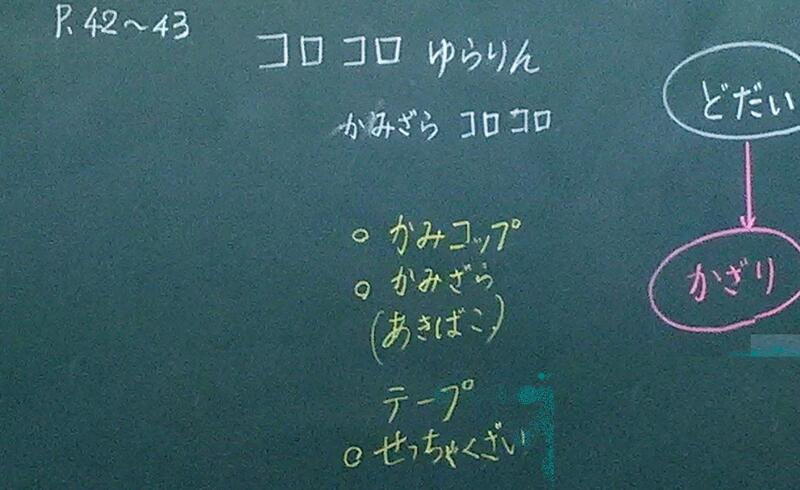 P.42〜43
コロコロ ゆらりん
かみざら コロコロ
○ かみコップ
○ かみざら
(あきばこ)
テープ
○ せっちゃくざい
どだい
かざり